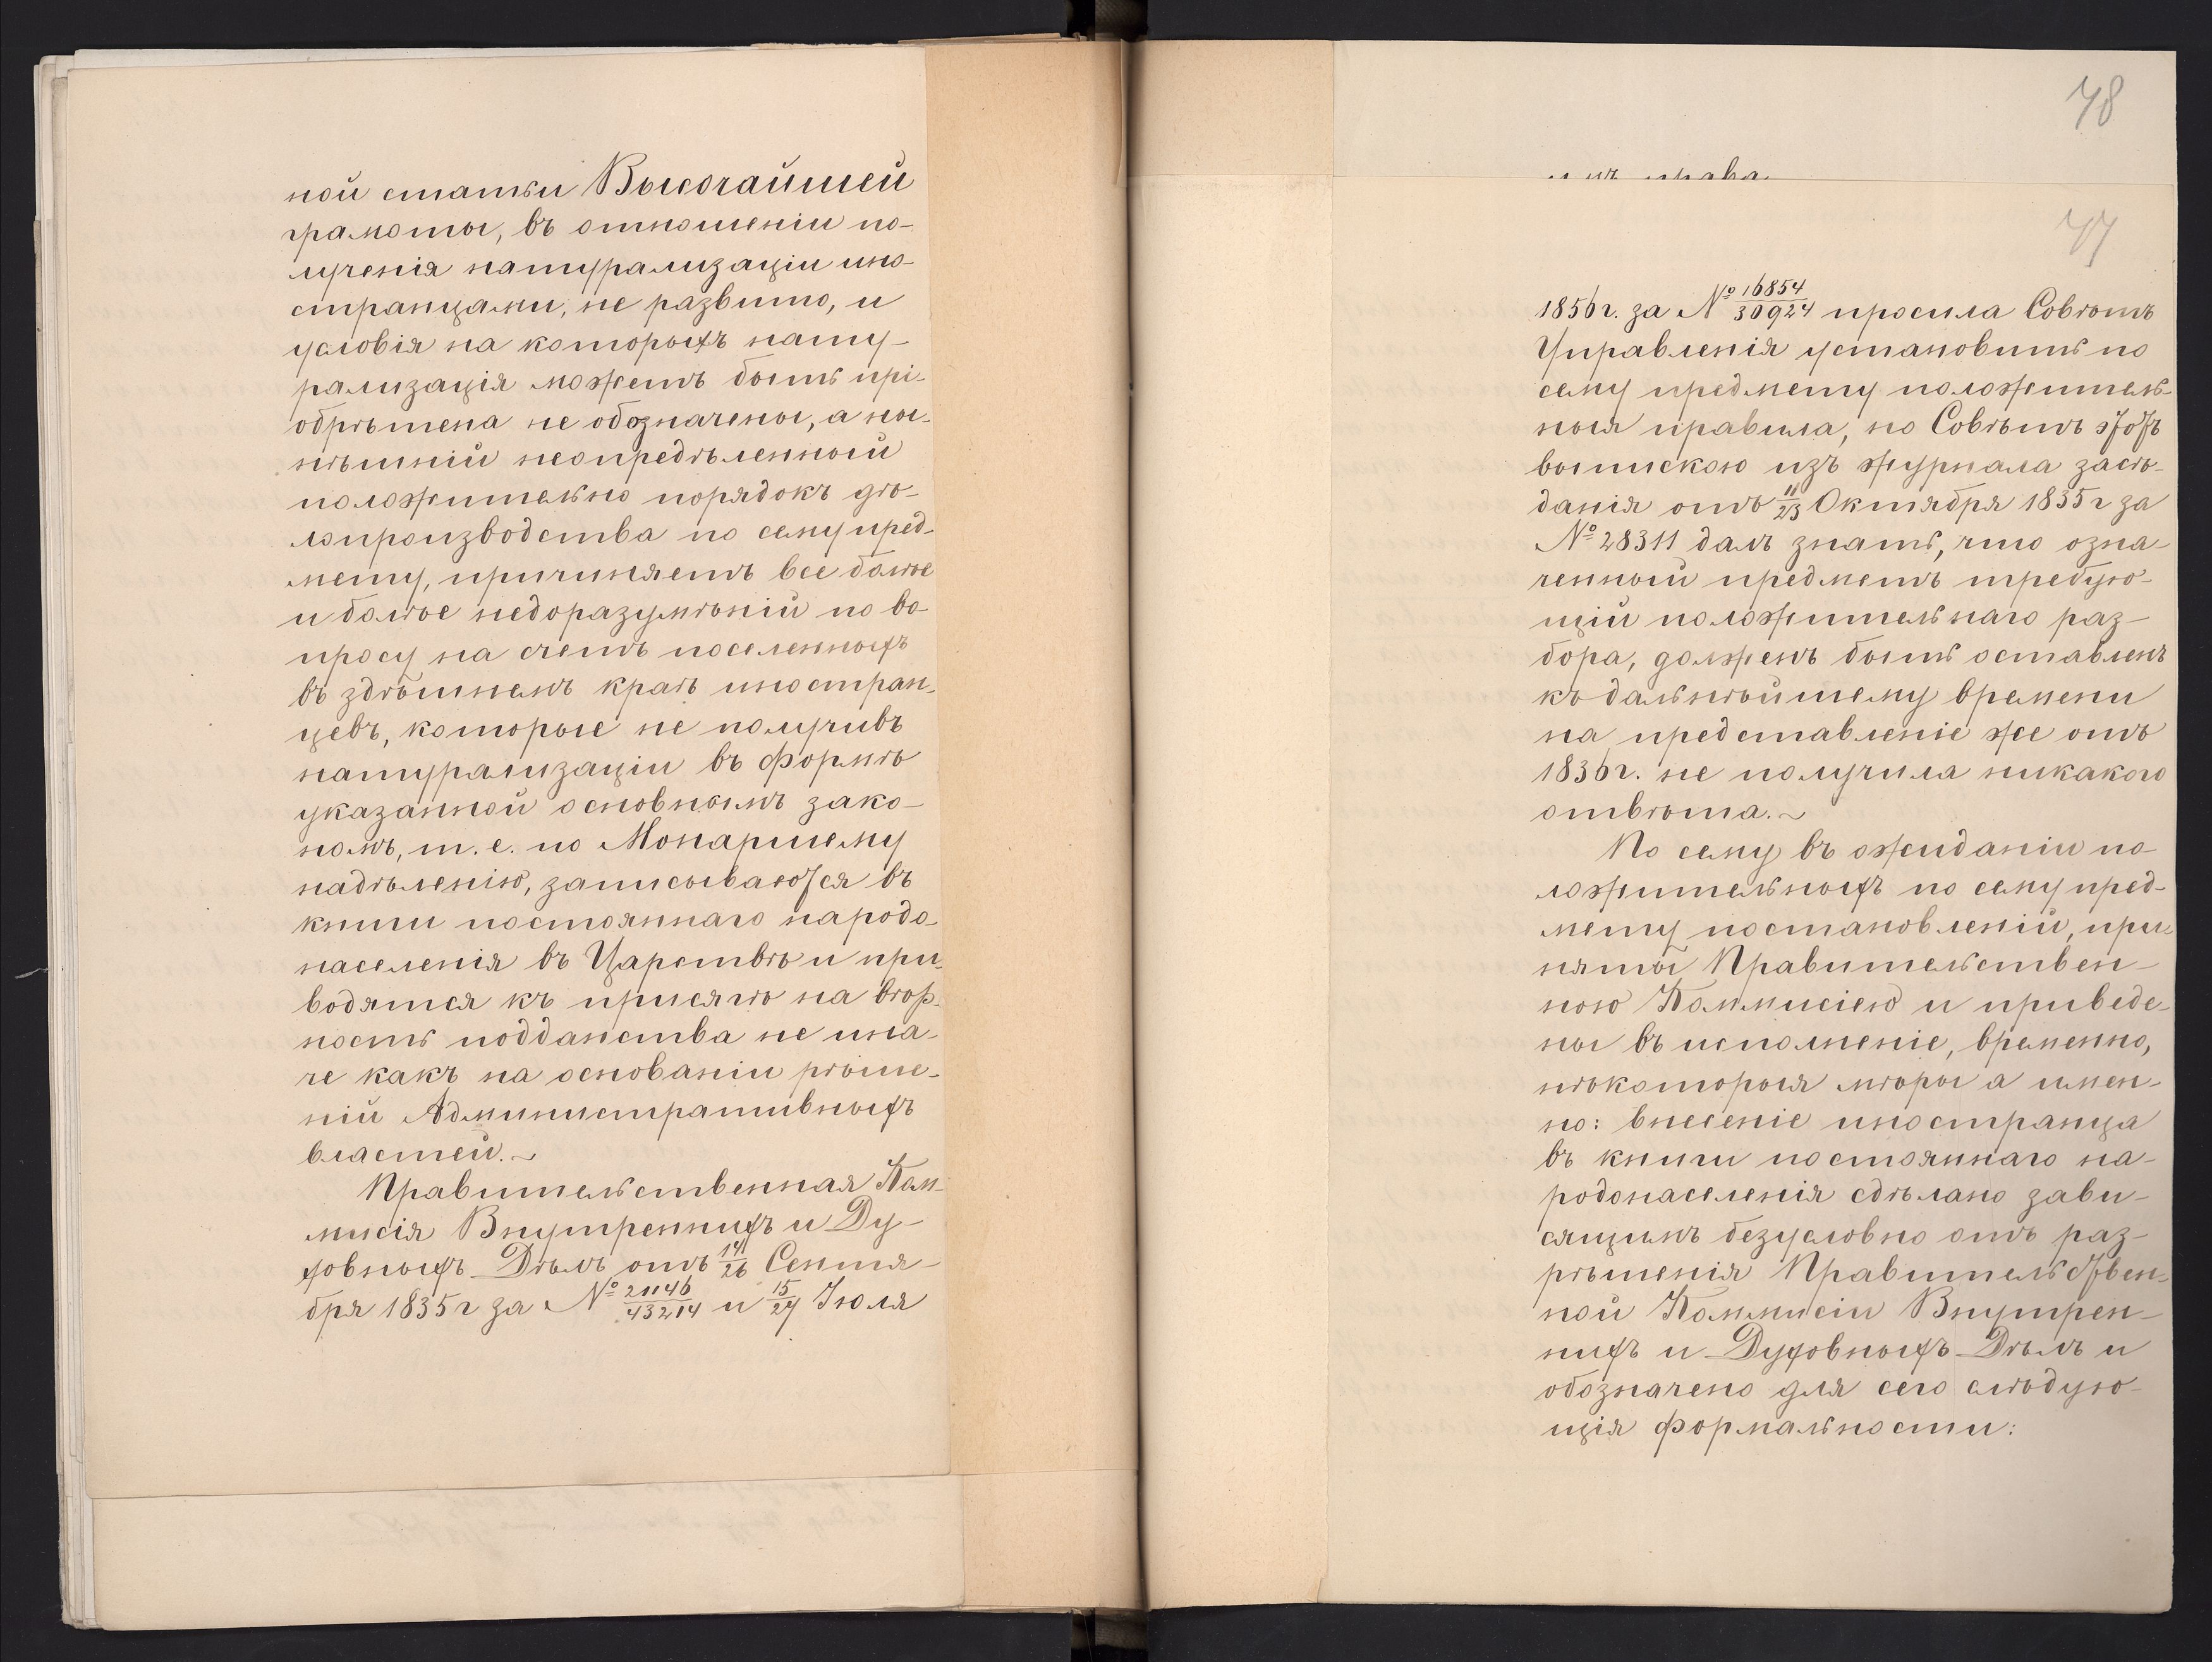 ной статьи Высочайшей
грамоты, въ отношеніи по-
лученія натурализаціи ино-
странцами, не развито, и
условія на которыхъ нату-
рализація можетъ быть прі-
обрѣтена не обозначены, а ны-
нѣшній неопредѣленный
положительно порядокъ дѣ-
лопроизводства по сему пред-
мету, причиняетъ все болѣе
и болѣе недоразумѣній по во-
просу на счетъ поселенныхъ
въ здѣшнемъ краѣ иностран-
цевъ, которые не получивъ
натурализаціи въ формѣ
указанной основнымъ зако-
номъ, т. е. по Монаршему
надѣленію, записываются въ
книги постояннаго народо-
населенія въ Царствѣ и при-
водятся къ присягѣ на вѣр-
ность подданства не ина-
че какъ на основаніи рѣше-
ній Административныхъ
властей.~
Правительственная Ком-
мисія Внутреннихъ и Ду-
ховныхъ Дѣлъ отъ 14/26 Сентя-
бря 1835 г за № 21146/43214 и 15/27 Іюля
78
77
1836 г. за № 16854/30924 просила Совѣтъ
Управленія установить по
сему предмету положитель-
ныя правила, но Совѣтъ тотъ
выпискою изъ журнала засѣ-
данія отъ 11/23 Октября 1835 г за
№ 28311 далъ знать, что озна-
ченный предметъ требую-
щій положительнаго раз-
бора, долженъ быть оставленъ
къ дальнѣйшему времени
на представленіе же отъ
1836 г. не получила никакого
отвѣта.~
По сему въ ожиданіи по-
ложительныхъ по сему пред-
мету постановленій, при-
няты Правительствен-
ною Коммисіею и приведе-
ны въ исполненіе, временно,
нѣкоторыя мѣры а имен-
но: внесеніе иностранца
въ книги постояннаго на-
родонаселенія сдѣлано зави-
сящимъ безусловно отъ раз-
рѣшенія Правительствен-
ной Коммисіи Внутрен-
нихъ и Духовныхъ Дѣлъ и
обозначено для сего слѣдую-
щія формальности: